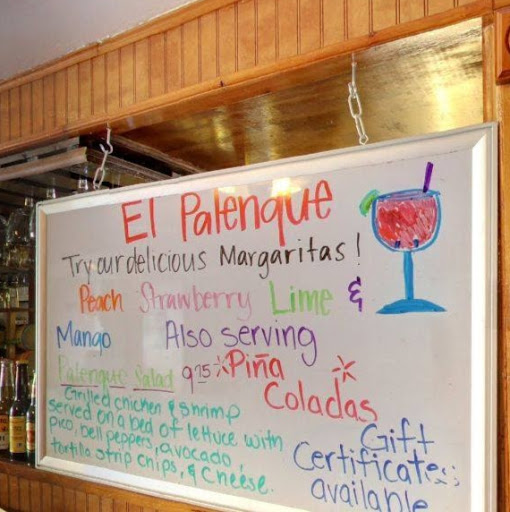 El Palenque
Try our delicious Margaritas!
Peach Strawberry Lime &
Mango Also serving
Piña
Coladas
Palenque Salad 9.75
Grilled chicken & shrimp
served on a bed of lettuce with
pico, bell peppers, avocado,
tortilla strip chips, & cheese.
Gift
Certificates
available